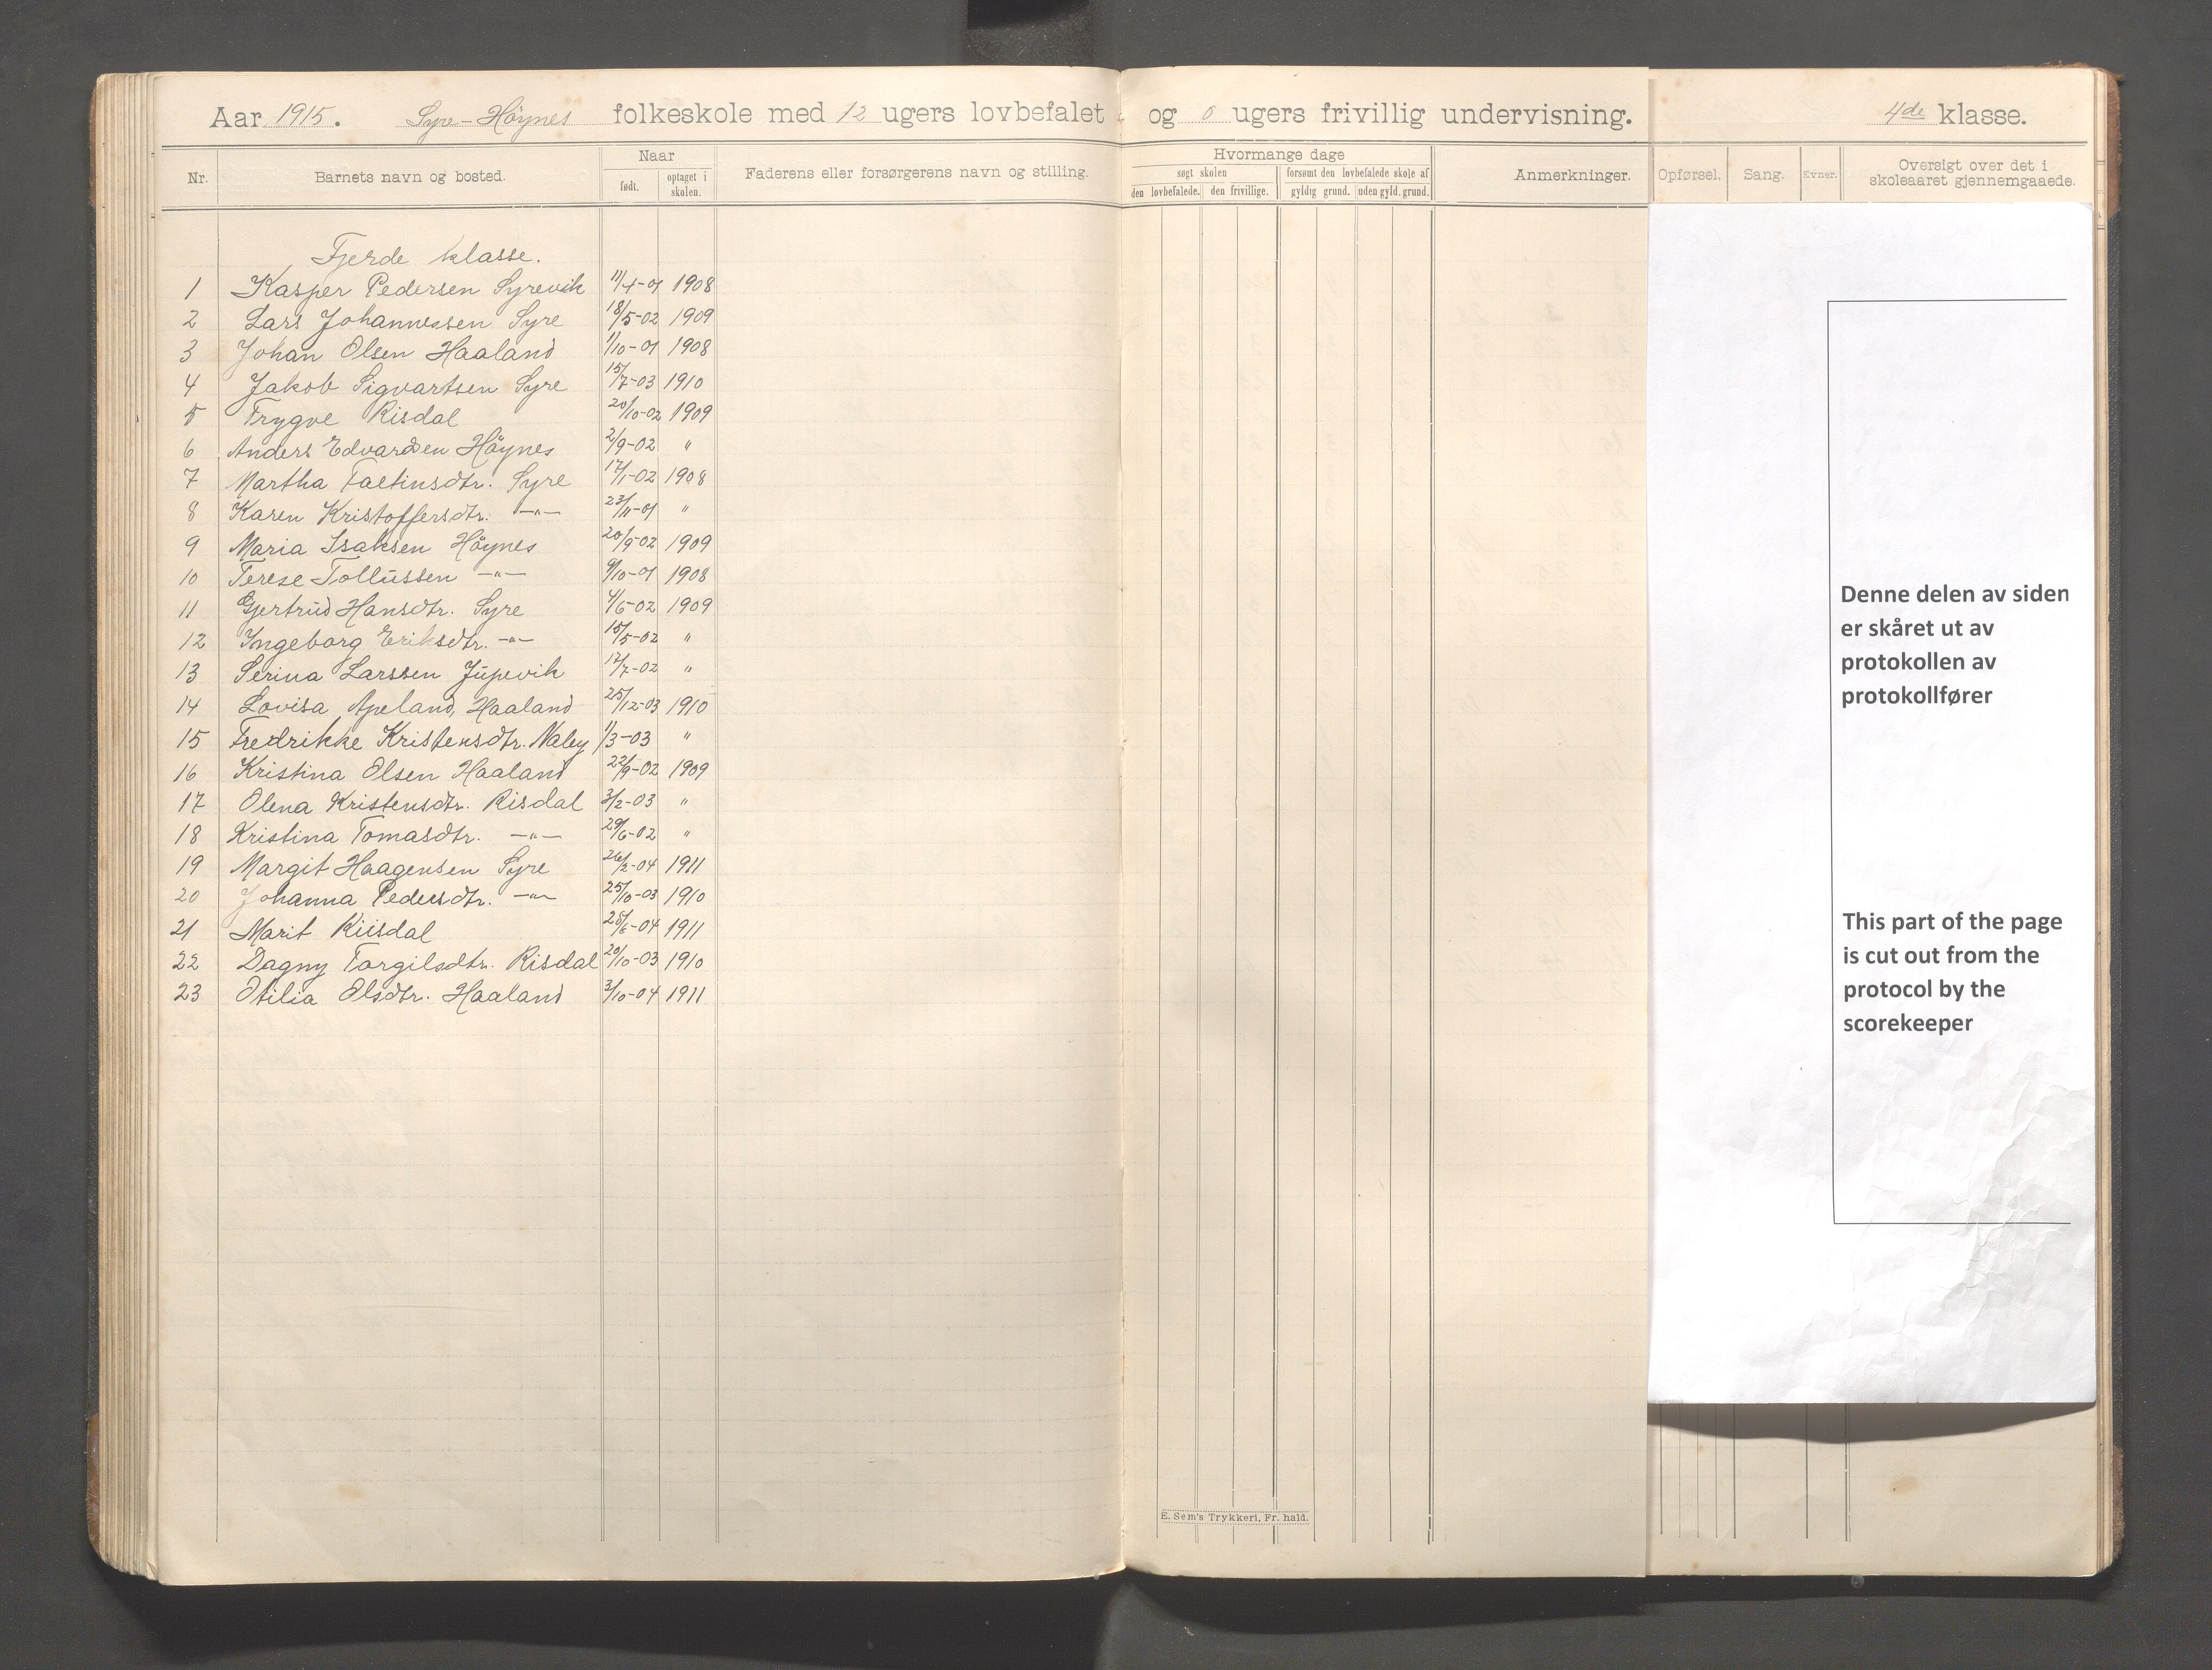 Aar 1915. Syre-Höynes folkeskole med 12 ugers lovbefalet og 0 ugers frivillig undervisning. 4de klasse.
Nr. Barnets navn og bosted. Naar født. optaget i skolen. Faderens eller forsørgerens navn og stilling. Hvormange dage søgt skolen den lovbefalede. den frivillige. forsømt den lovbefalede skole af gyldig grund. uden gyld. grund. Anmerkninger. Opførsel. Sang. Evner. Oversigt over det i skoleaaret gjennemgaaede.
Fjerde klasse.
1 Kasper Pedersen Syrevik 11/4-01 1908
2 Lars Johannessen Syre 18/5-02 1909
3 Johan Olsen Haaland 1/10-01 1908
4 Jakob Sigvartsen Syre 15/7-03 1910
5 Trygve Risdal 20/10-02 1909
6 Anders Edvardsen Höynes 2/9-02 "
7 Martha Faltinsdtr. Syre 17/1-02 1908
8 Karen Kristoffersdtr. -"- 23/11-01 "
9 Maria Isaksen Höynes 20/9-02 1909
10 Terese Tollussen -"- 9/10-01 1908
11 Gjertrud Hansdtr. Syre 4/6-02 1909
12 Ingeborg Eriksdtr. -"- 15/5-02 "
13 Serina Larssen Jupevik 17/7-02 "
14 Lovisa Apeland, Haaland 25/12-03 1910
15 Fredrikke Kristensdtr. Naley 1/3-03 "
16 Kristina Olsen Haaland 22/9-02 1909
17 Olena Kristensdtr. Risdal 3/2-03 "
18 Kristina Tomasdtr. -"- 29/6-02 "
19 Margit Haagensen Syre 26/2-04 1911
20 Johanna Pedersdtr. -"- 25/10-03 1910
21 Marit Riisdal 25/6-04 1911
22 Dagny Torgilsdtr. Risdal 20/10-03 1910
23 Otilia Olsdtr. Haaland 3/10-04 1911
E. Sem's Trykkeri, Fr. hald.
Denne delen av siden
er skåret ut av
protokollen av
protokollfører
This part of the page
is cut out from the
protocol by the
scorekeeper